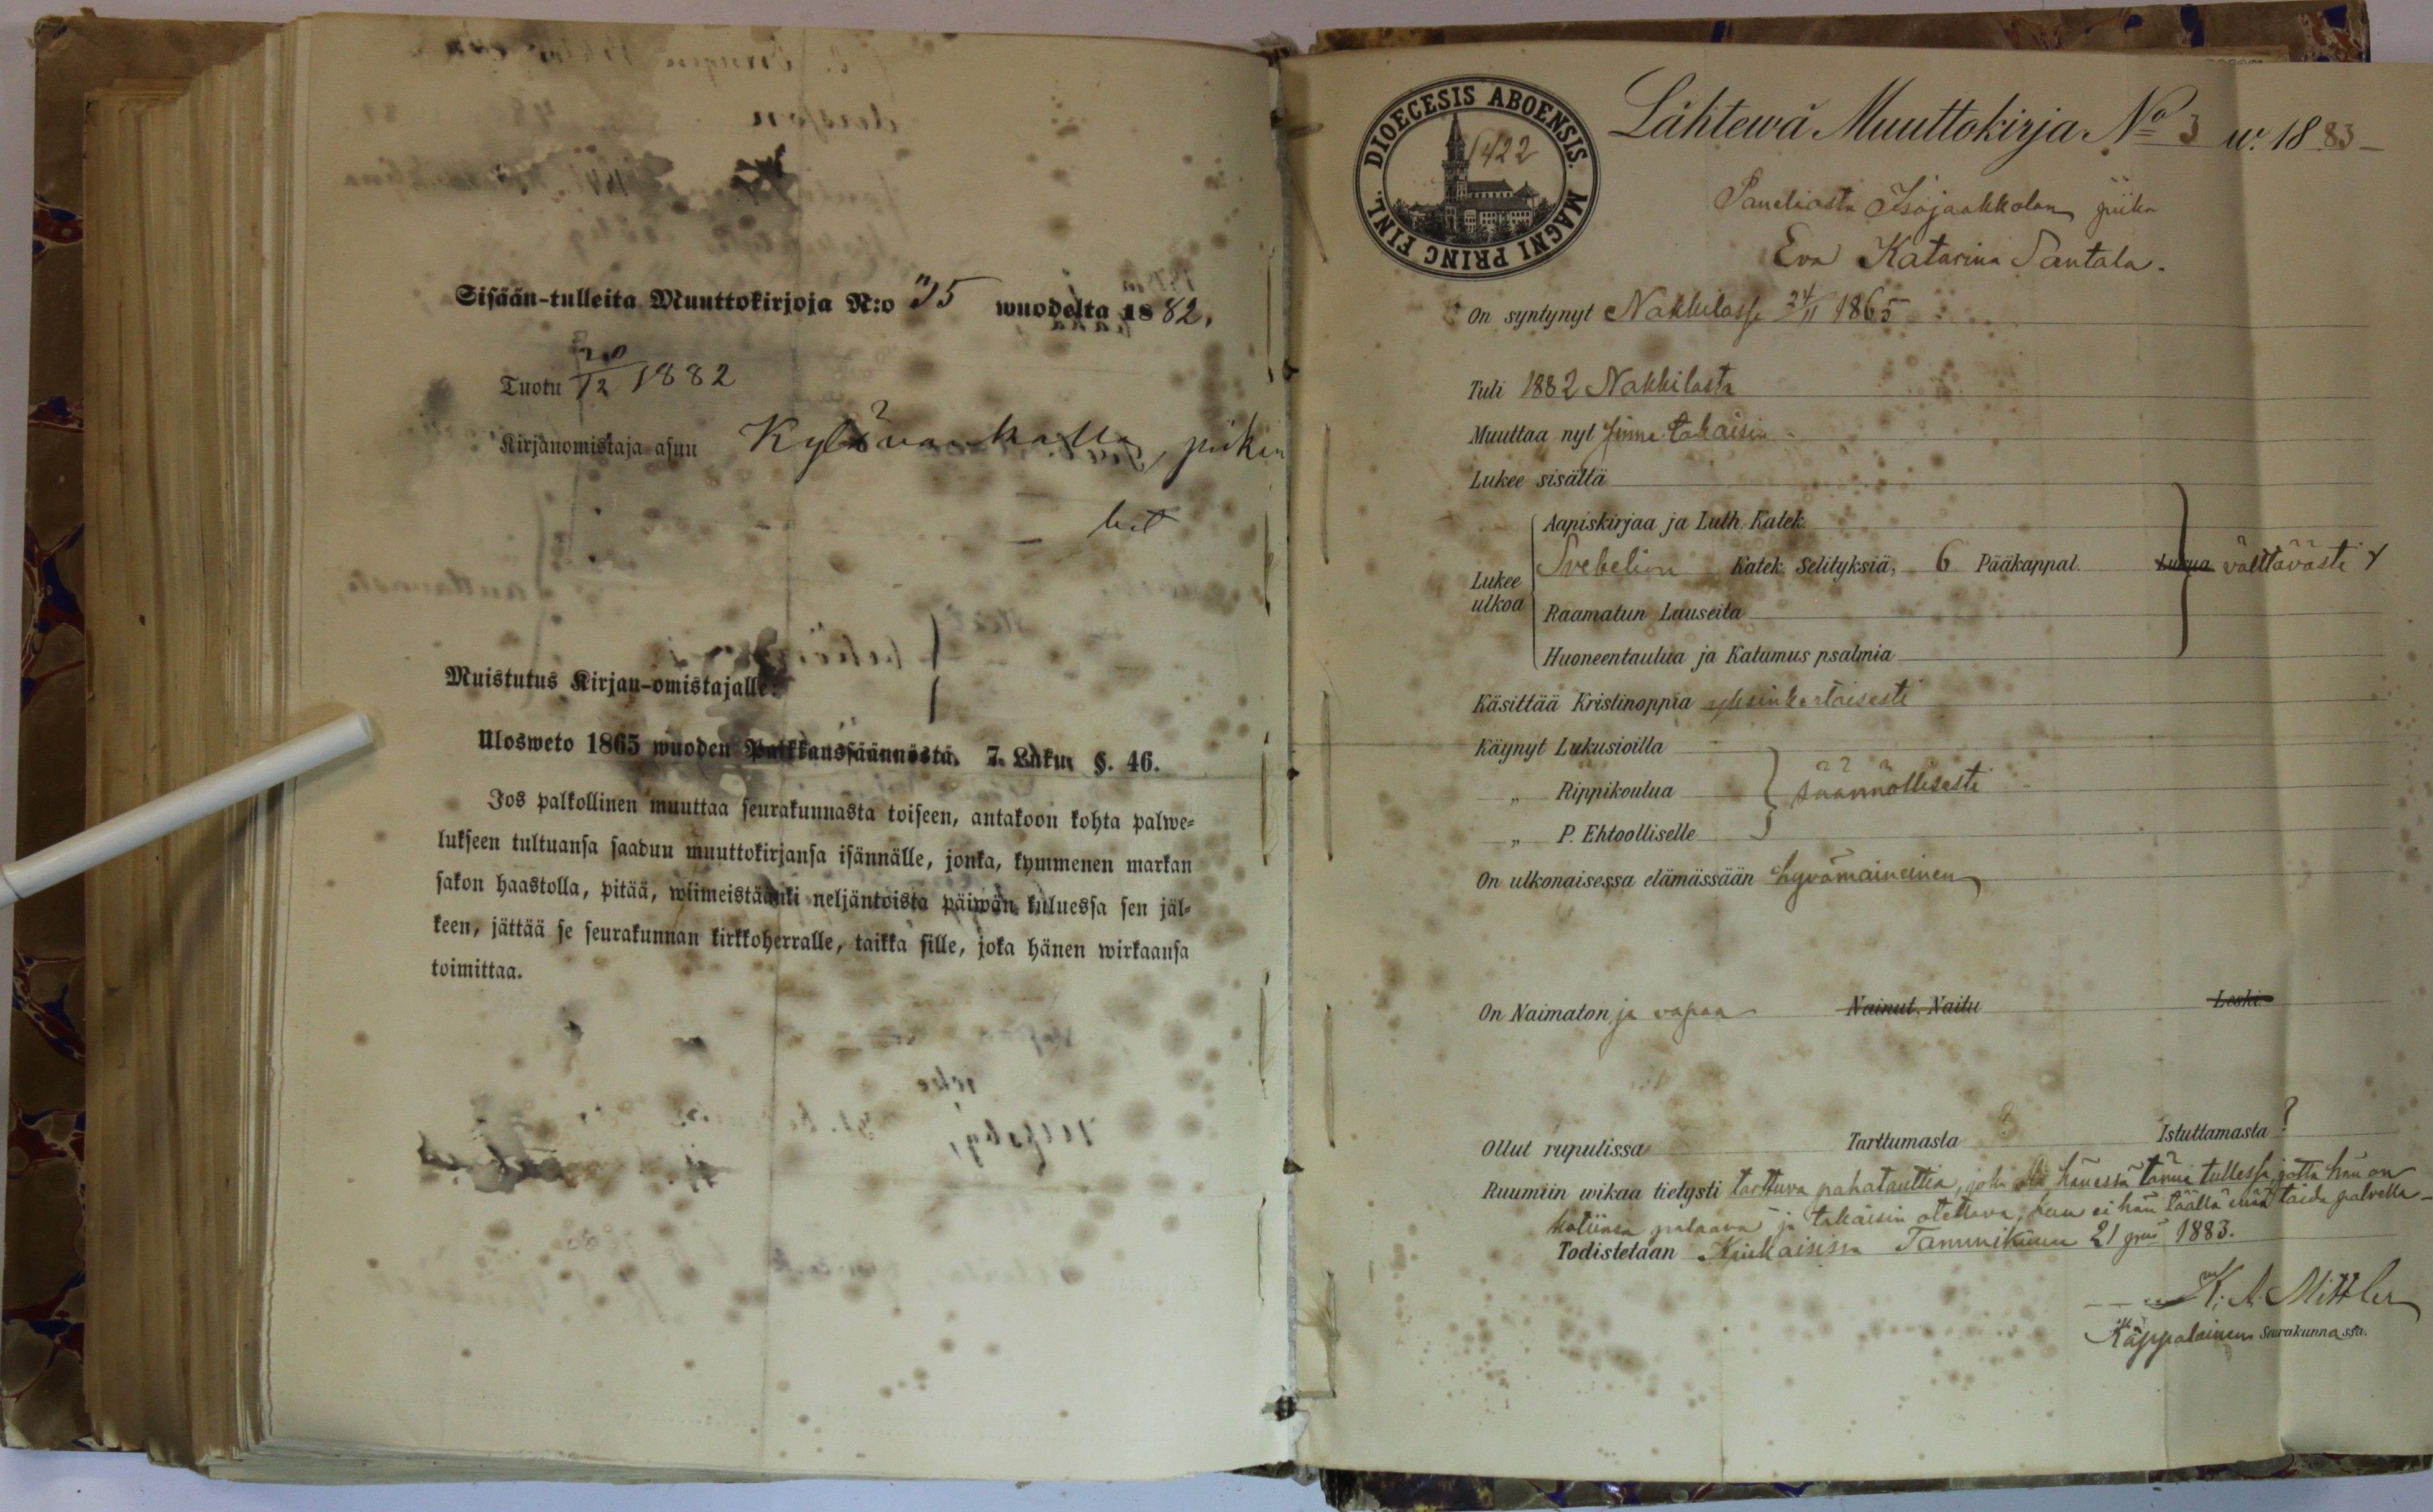 Sisään-tulleita Muuttokirjoja N:o 35 wuodelta 1882.
Tuotu 20/12 1882
Kirjanomistaja asuu piikin
Muistutus Kirjan-omistajalle:
Ulosweto 1865 wuoden Palkkaussäännöstä. 7. Luku §. 46.
Jos palkollinen muuttaa seurakunnasta toiseen, antakoon kohta palwe-
lukseen tultuansa saadun muuttokirjansa isännälle, jonka, kymmenen markan
sakon haastolla, pitää, wiimeistäänki neljäntoista päiwän kuluessa sen jäl-
keen, jättää se seurakunnan kirkkoherralle, taikka sille, joka hänen wirkaansa
toimittaa.
DIOECESIS ABOENSIS. MAGNI PRINC FINL.
1422
Lähtewä Muuttokirja No 3 w. 1883
Paneliasta Isojaakkolan piika
Eva Katarina Santala.
On syntynyt Nakkilassa 24/11 1865
Tuli 1882 Nakkilasta
Muuttaa nyt sinne takaisin
Lukee sisältä
Lukee ulkoa
Aapiskirjaa ja Luth. Katek.
Svebelion Katek. Selityksiä, 6 Pääkappal. Lukua välttävästi
Raamatun Lauseita
Huoneentaulua ja Katumus psalmia
Käsittää Kristinoppia yksinkertaisesti
Käynyt Lukusioilla
„ Rippikoulua säännöllisesti
„ P. Ehtoolliselle
On ulkonaisessa elämässään hyvämaineinen
On Naimaton ja vapaa Nainut, Naitu Leski
Ollut rupulissa Tarttumasta ? Istuttamasta ?
Ruumiin wikaa tietysti tarttuva pahatauttia, joka oli hänessä tänne tullessa, jotta hän on
kotiinsa palaava ja takaisin otettava, kun ei hän täällä enää taida palvella
Todistetaan Kiukaisissa Tammikuun 21 pnä 1883.
K. A. Mittler
Käppalainen Seurakunnassa.